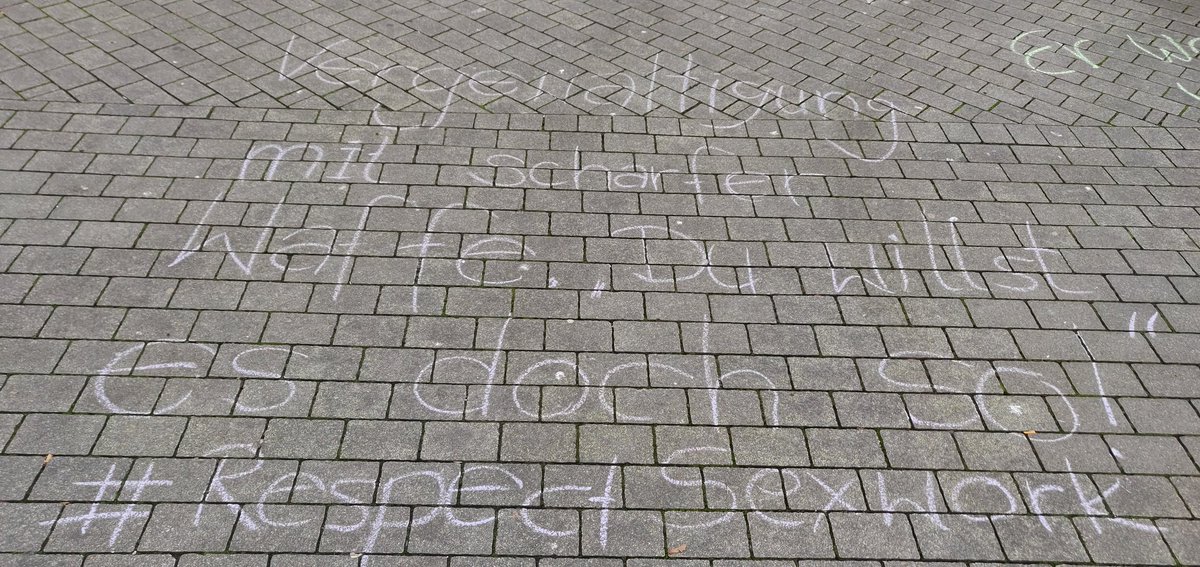 Vergewaltigung
mit scharfer
Waffe. „Du willst
es doch so!"
#Respect Sexwork
Er